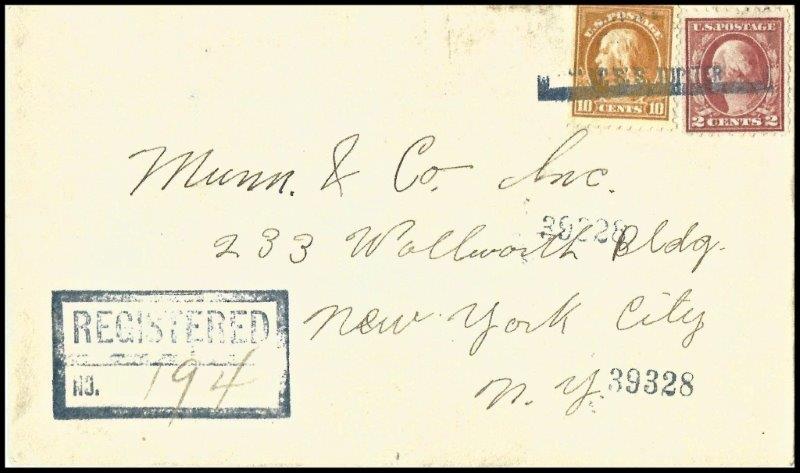 U.S. POSTAGE
10 CENTS 10
U.S. POSTAGE
2 CENTS 2
U.S.S. JUPITER
Munn. & Co. Inc.
39328
233 Wollworth Bldg.
REGISTERED
NO. 194
New York City
N. Y. 39328